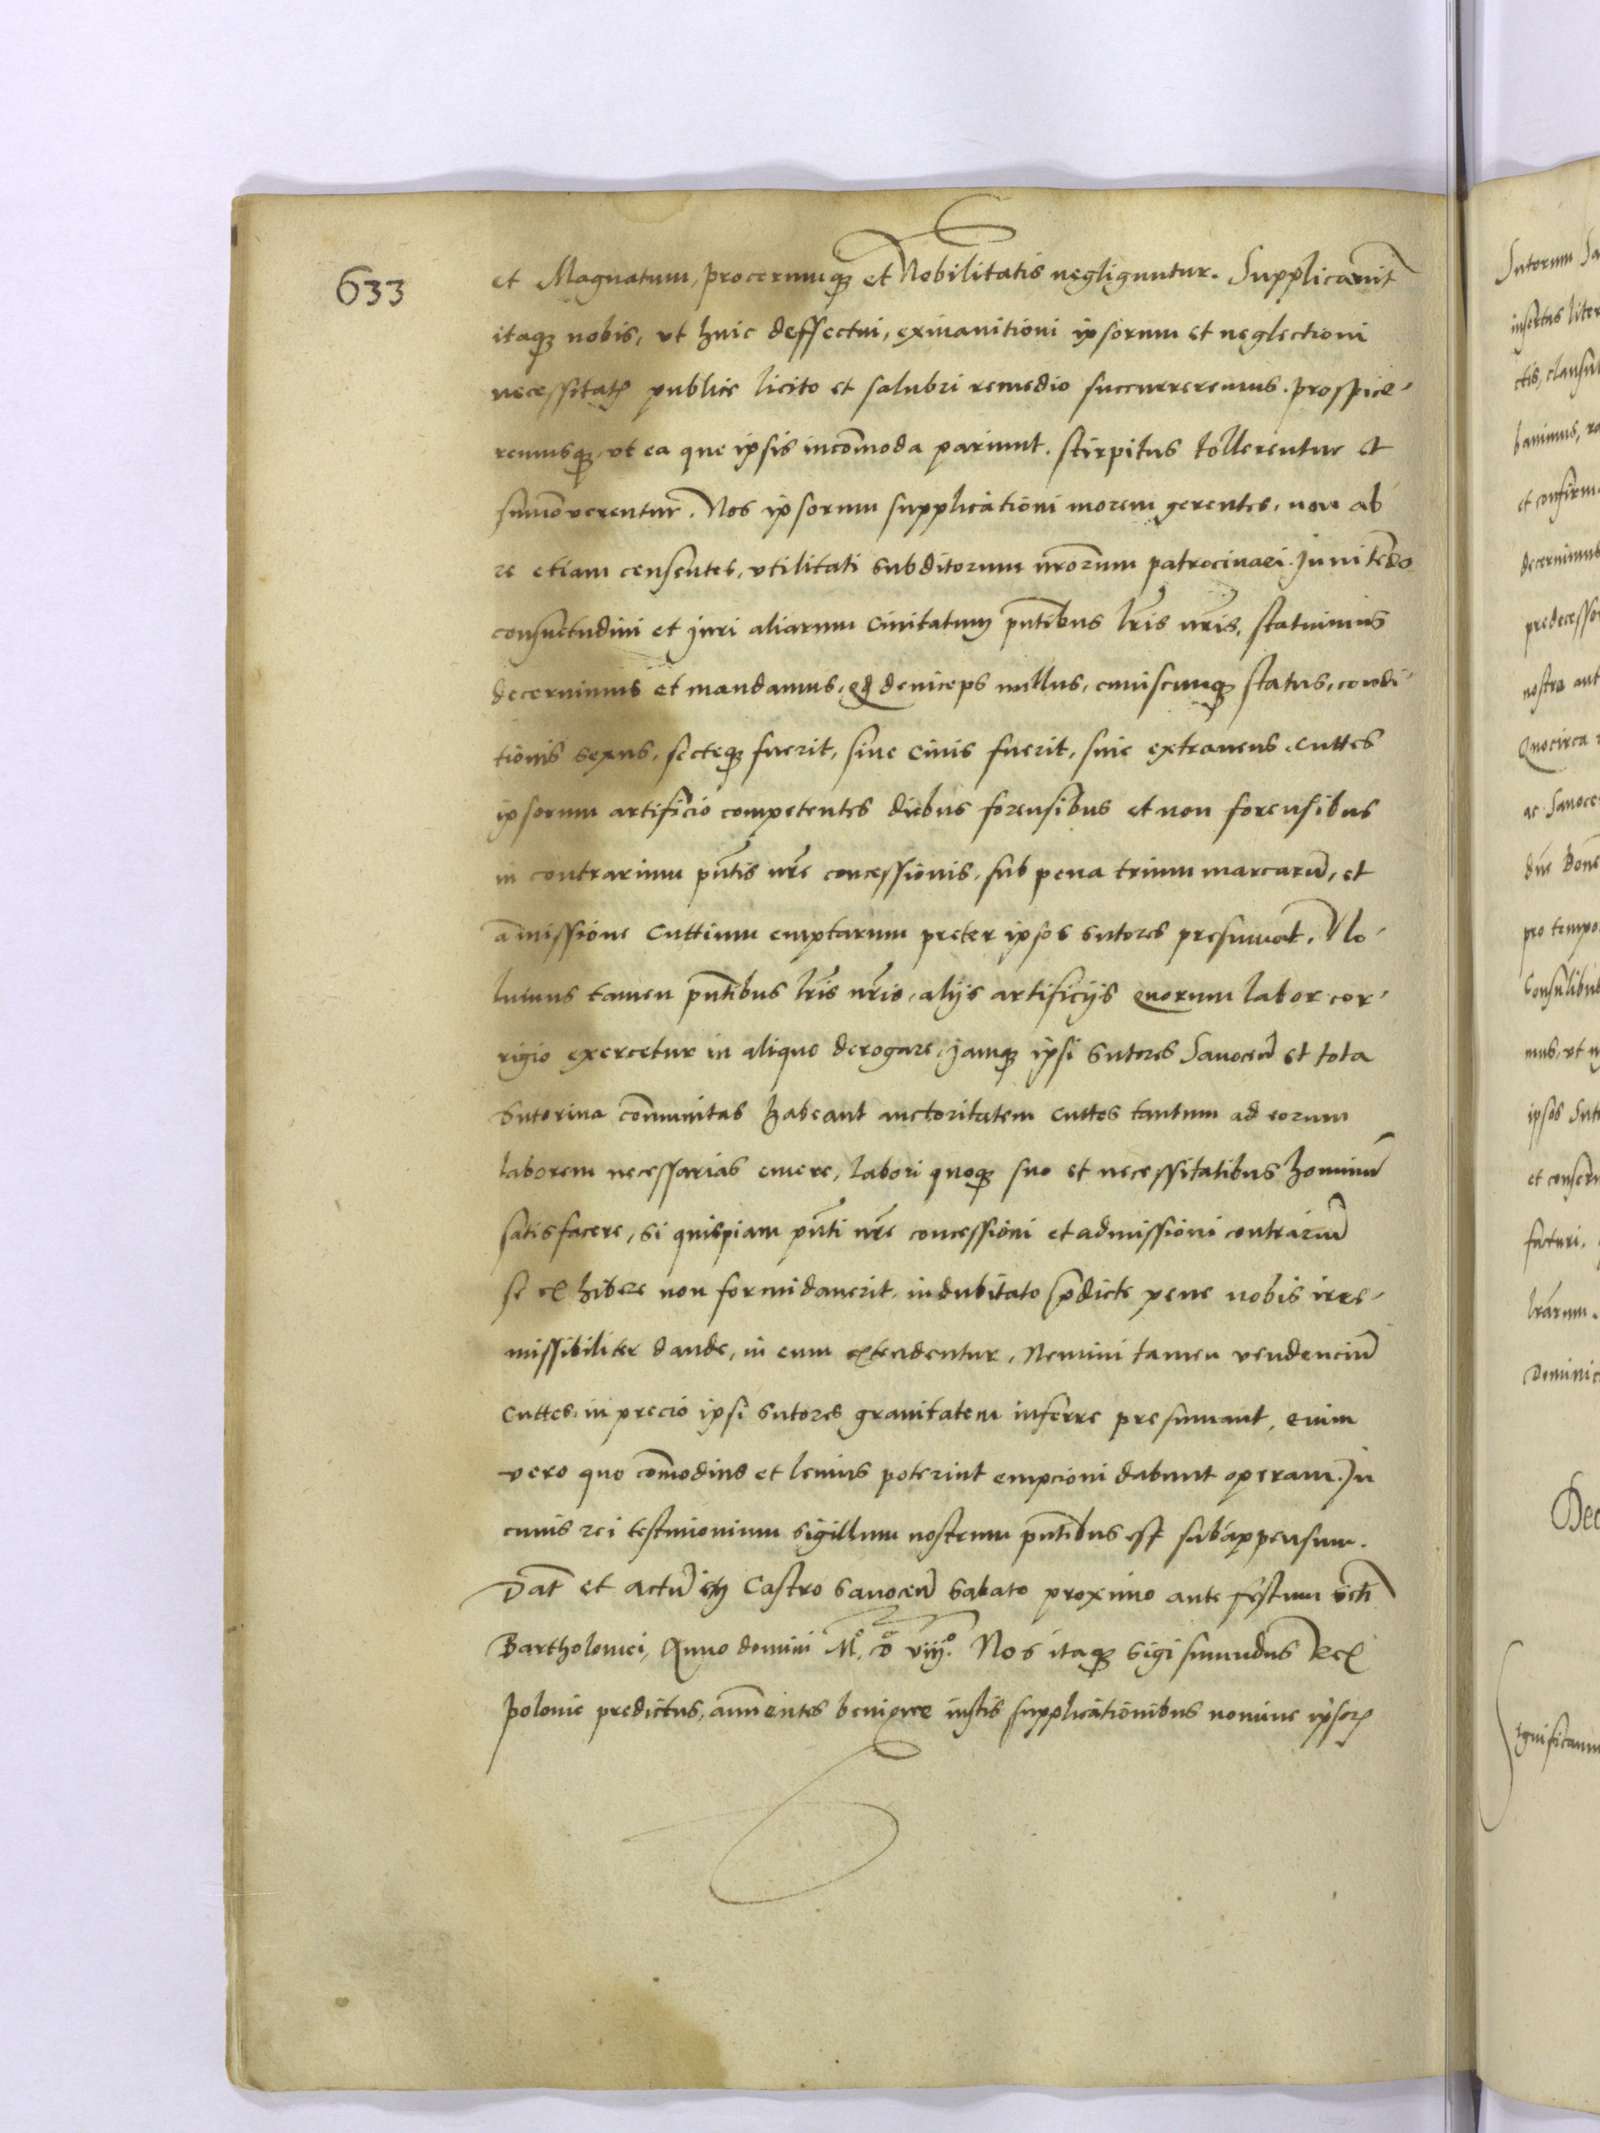 633
et Magnatum, procerumq et Nobilitatis negliguntur. Supplicavit
itaq nobis, ut huic deffectui, exinanitioni ipsorum et neglectioni
necessitat publice licito et salubri remedio succurreremus. prospice-
remusq, ut ea que ipsis incomoda pariunt. stirpitus tollerentur et
sumoverentur. Nos ipsorum supplicationi morem gerentes, non ab
re etiam censentes, utilitati subditorum nrorum patrocinari.
consuetudini et juri aliarum Civitatum pntibus lris nris, statuimus
decernimus et mandamus, qd deniceps nullus, cuiuscunq status, condi-
tionis sexus, secteq fuerit, sive civis fuerit, sive extraneus cuttes
ipsorum artificio competentes diebus forensibus et non forensibus
in contrarium pntis nre concessionis, sub pena trium marcaru, et
amissione cuttium emptarum preter ipsos sutores presumat. No-
lumus tamen pntibus lris nris, alijs artificijs quorum labor cor-
rigio exercetur in aliquo derogare, jamq ipsi sutores Sanocen et tota
Sutorina comunitas habeant auctoritatem cuttes tantum ad eorum
laborem necessarias emere, labori quoq suo et necessitatibus hominu
satisfacere, si quispiam pnti nre concessioni et admissioni contrariu
se exhibere non formidaverit, indubitato pdicte pene nobis irre-
missibiliter dande, in eum extendentur, Nemini tamen vendenciu
cuttes, in precio ipsi sutores gravitatem inferre presumant, enim
vero quo comodius et levius poterint empcioni dabunt operam. In
cuius rei testimonium sigillum nostrum pntibus est subappensum.
Dat et actu in Castro Sanocen Sabato proximo ante festum scti
Bartholomei, Anno domini Mo. Do viijo. Nos itaq Sigismundus Rex
polonie predictus, annuentes benigne iustis supplicationibus nomine ipsor
Sutorum Sa
insertas liter
ctis, clausul
et confirma
decernimus
predecessor
nostra aut
Quocirca
ac Sanoce
pro tempo
Consulibus
mus, ut
ipsos Sut
et conser
facturi.
lrarum.
Dominic
Dec
ignificamu